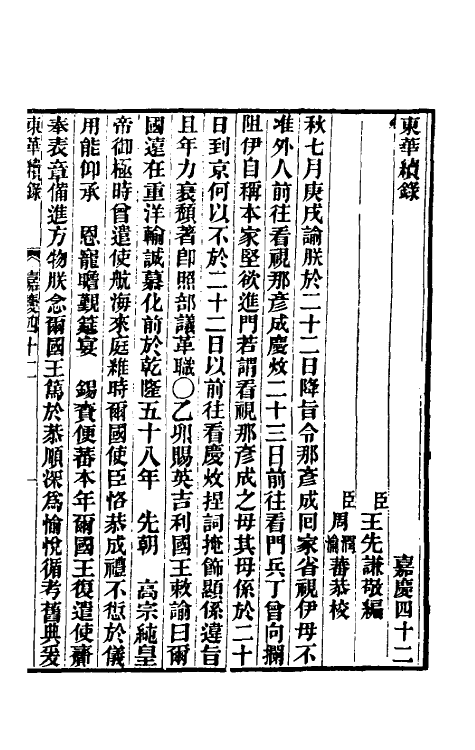 東華續錄　嘉慶四十二
臣王先謙敬編
臣周潤蕃周瀹蕃恭校
秋七月庚戌諭朕於二十二日降旨令那彥成回家省視伊母不
准外人前往看視那彥成慶㪟二十三日前往看門兵丁曾向攔
阻伊自稱本家堅欲進門若謂看視那彥成之母其母係於二十
日到京何以不於二十二日以前往看慶㪟捏詞掩飾顯係違旨
且年力衰頹著卽照部議革職○乙卯賜英吉利國王敕諭曰爾
國遠在重洋輸誠慕化前於乾隆五十八年　先朝　高宗純皇
帝御極時曾遣使航海來庭維時爾國使臣恪恭成禮不愆於儀
用能仰承　恩寵瞻覲筵宴　錫賚便蕃本年爾國王復遣使齎
奉表章備進方物朕念爾國王篤於恭順深為愉悅循考舊典爰
東華續錄　嘉慶四十二　一